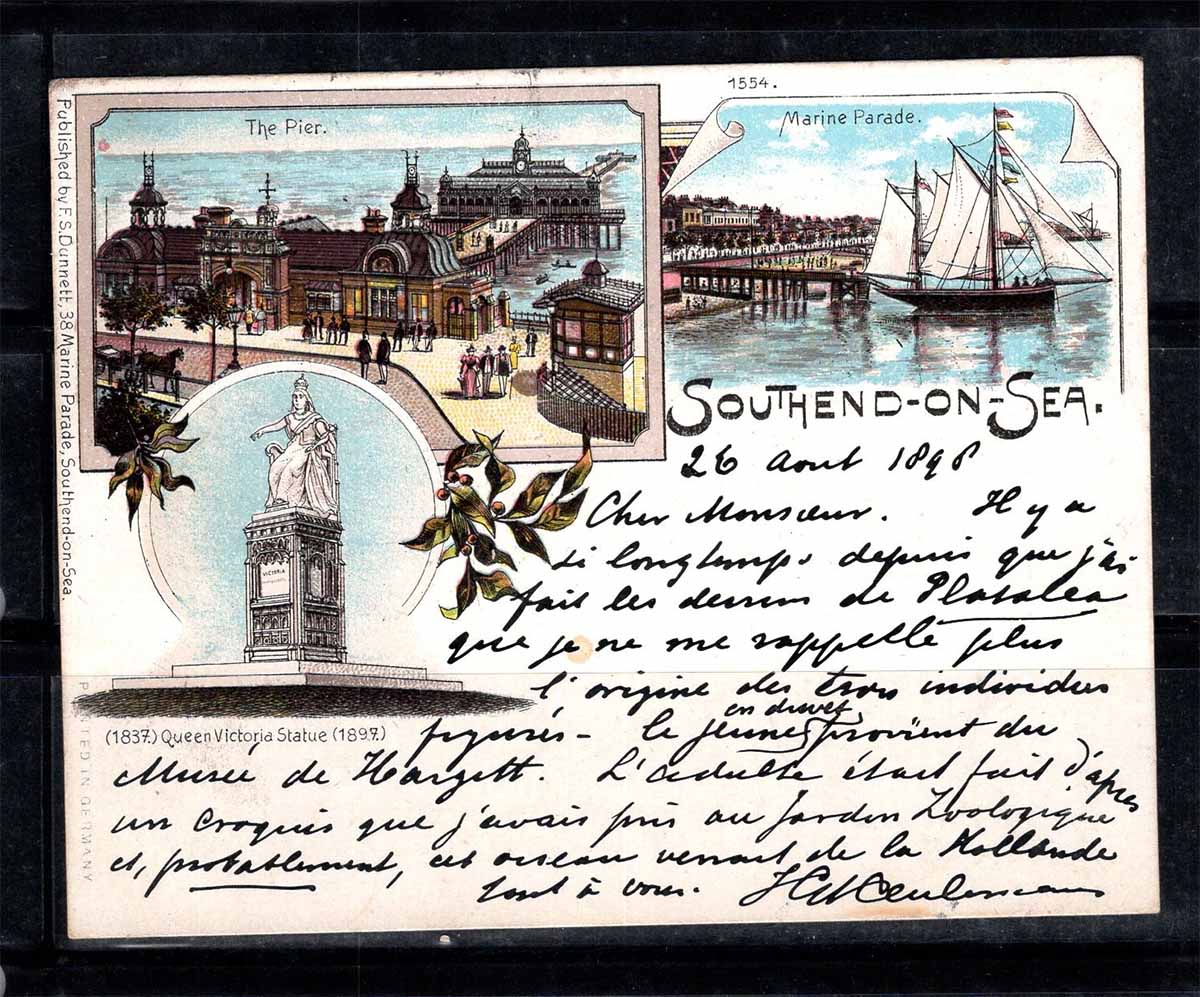 1554.
The Pier.
Marine Parade.
Published by F.S.Dunnett, 38 Marine Parade, Southend-on-Sea.
SOUTHEND-ON-SEA.
VICTORIA
(1837) Queen Victoria Statue (1897)
PRINTED IN GERMANY
26 Aout 1898
Cher Monsieur. Il y a
si longtemps depuis que j'ai
fait les dessins de Platalea
que je ne me rappelle plus
l'origine des trois individus
figurés – le jeune en duvet provient du
Musée de Hargitt. L'adulte était fait d'après
un croquis que j'avais pris au Jardin Zoologique
et, probablement, cet oiseau venait de la Hollande
tout à vous. Keulemans